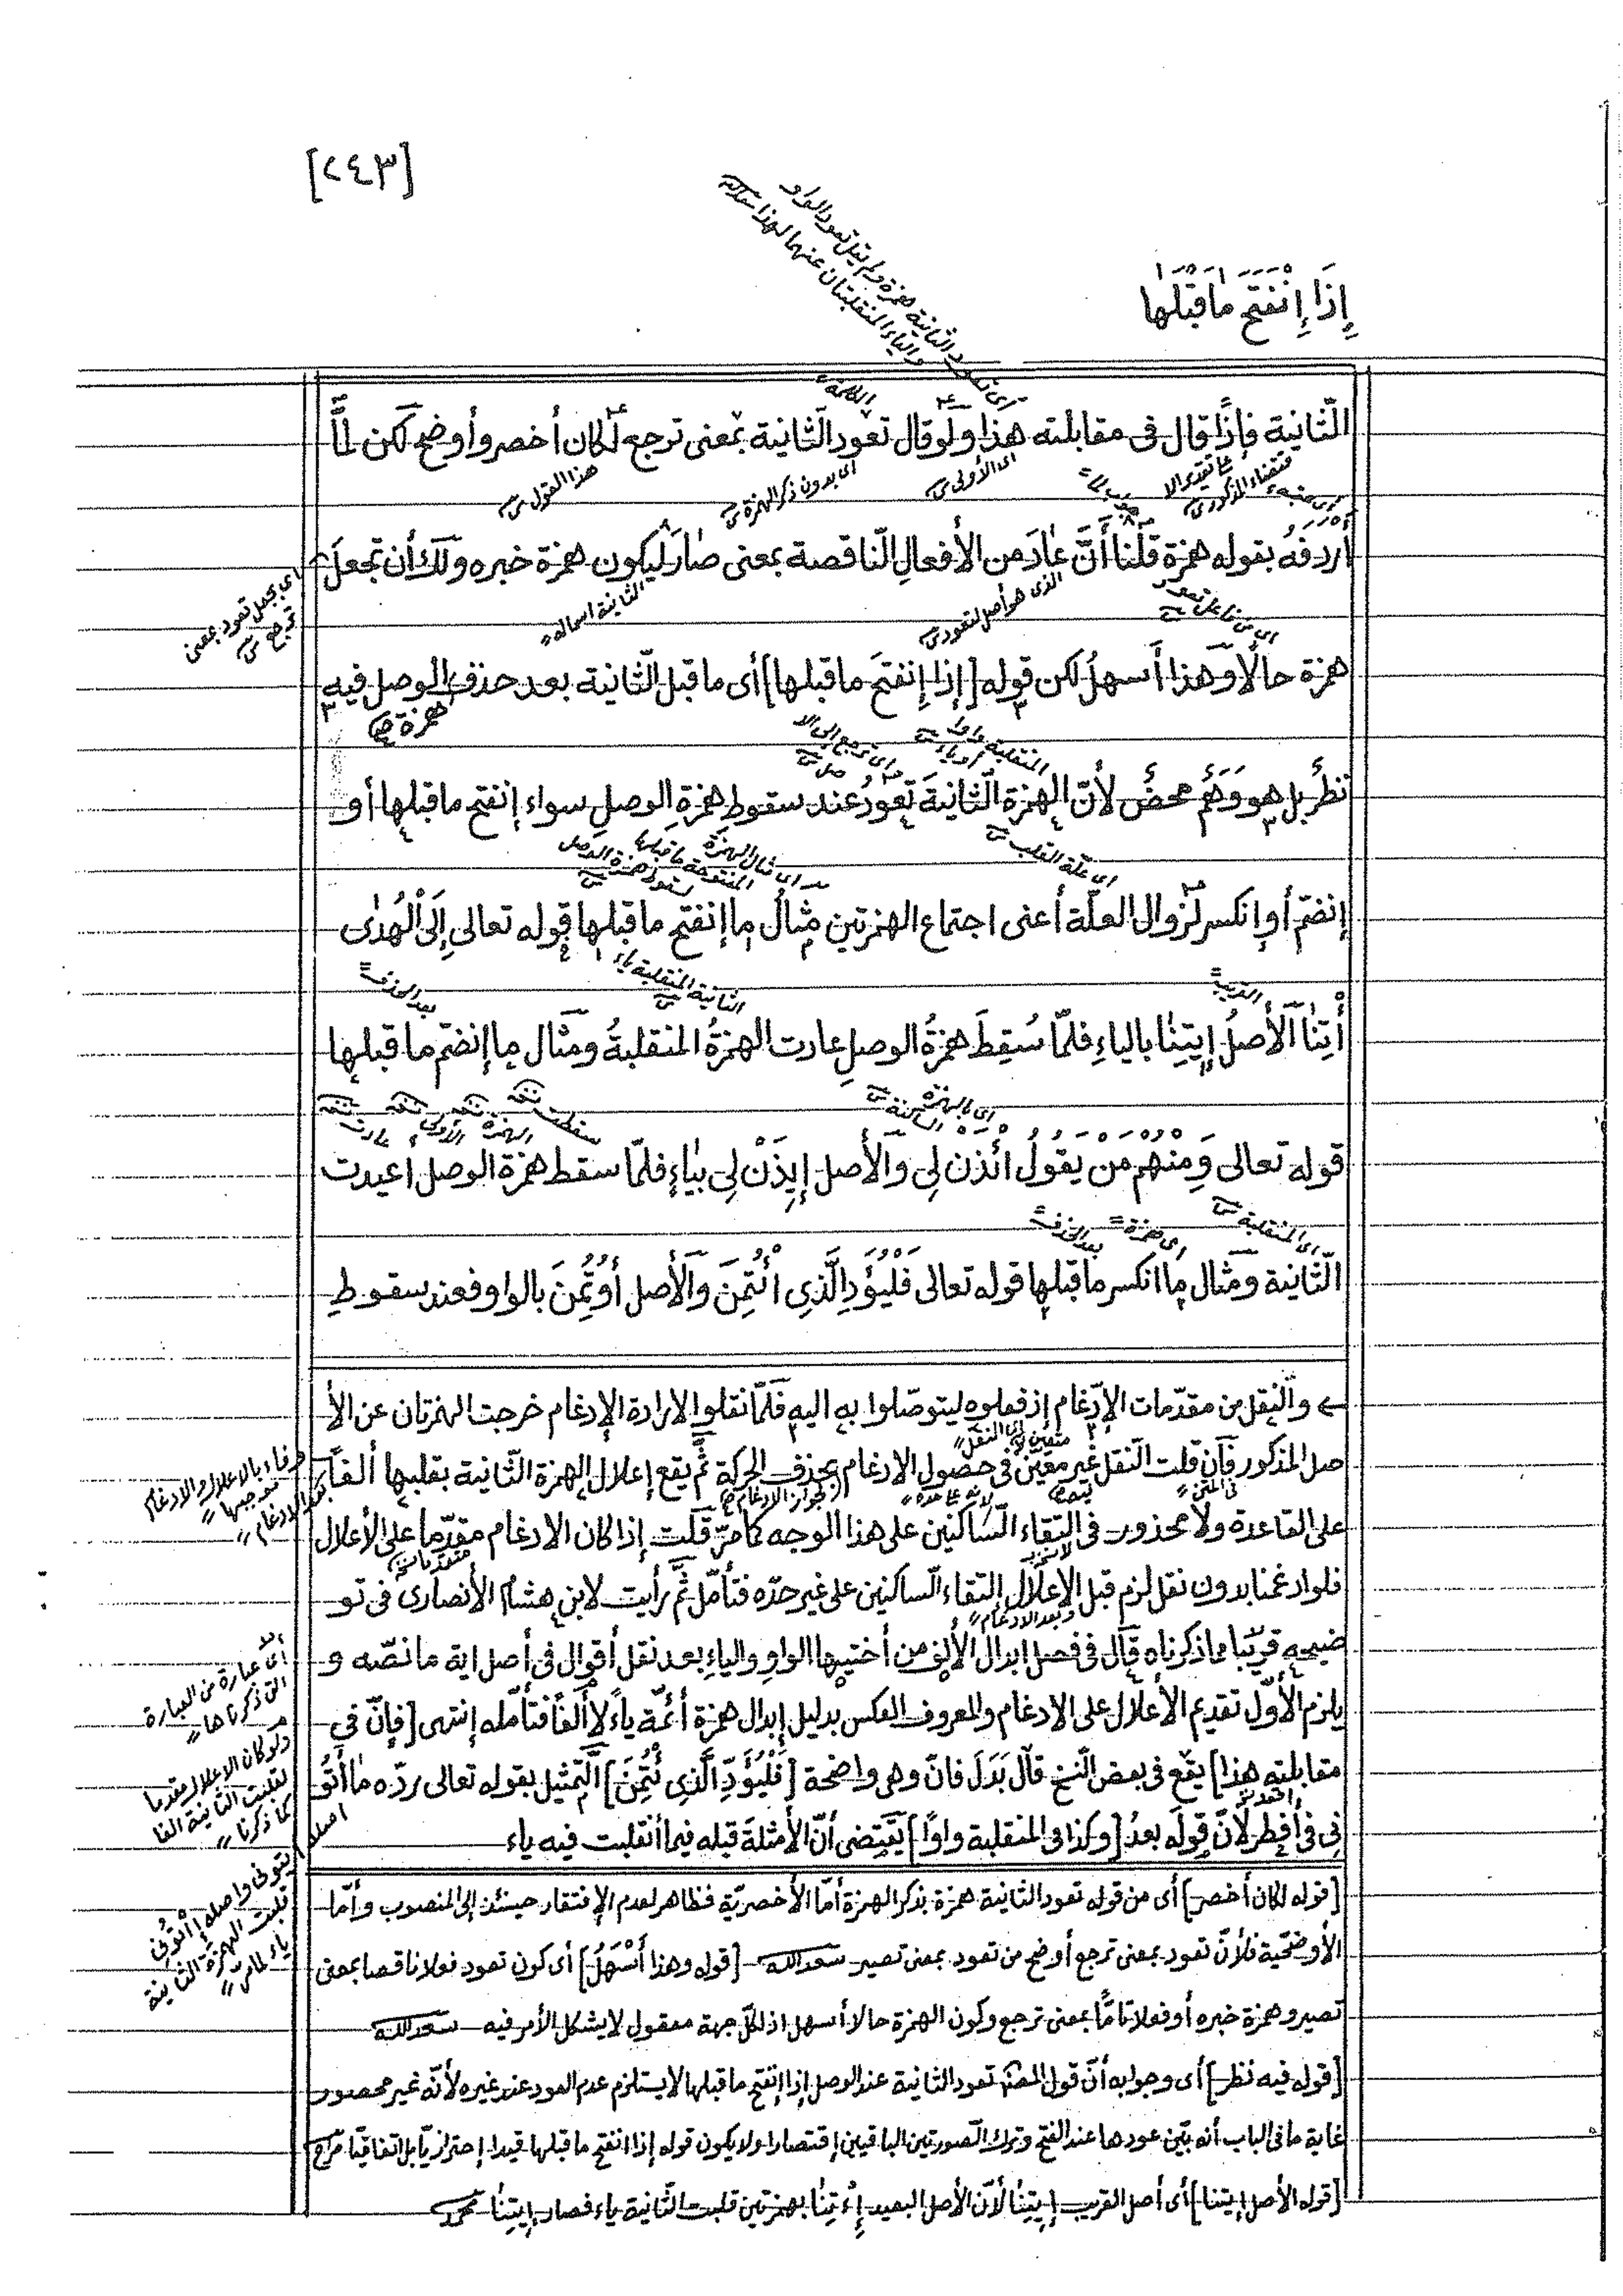 [٢٤٣]
إِذَا إِنْفَتَحَ مَا قَبْلَهَا
الثّانية فإذًا قال فى مقابلته هذا ولو قال تعود الثانية بمعنى ترجع لكان أخصر وأوضح لكن لمّا
أردفه بقوله همزة قلنا أنّ عاد من الأفعال النّاقصة بمعنى صار ليكون همزة خبره ولك أن تجعل
همزة حالًا وهذا أسهلُ لكن قوله [إذا إنفتحَ ما قبلها] أى ما قبل الثّانية بعد حذف الوصل فيه
همزة صح
نظرٌ بل هو وَهَمٌ محضٌ لأنّ الهمزة الثّانيةَ تعودُ عند سقوط همزةِ الوصلِ سواء إنفتح ما قبلها أو
إنضمّ أو إنكسر لزوال العلّة أعنى اجتماع الهمزتين مثالُ ما إنفتح ما قبلها قوله تعالى إِلَى الْهُدٰى
أْتِنَا الأصلُ إِيتِنَا بالياءِ فلمّا سُقِطَ همزةُ الوصلِ عادت الهمزةُ المنقلبةُ ومثال ما إنضمّ ما قبلها
قوله تعالى وَمِنْهُمْ مَن يَقُولُ ائْذَنْ لِى والأصل إِيذَنْ لِى بيَاءٍ فلمّا سقط همزة الوصل اعيدت
الثّانية ومثال ما انكسر ما قبلها قوله تعالى فَلْيُؤَدِّ الَّذِى ائْتُمِنَ والأصل أُوتُمِنَ بالواو فعند سقوطِ
والنّقل من مقدّمات الإدّغام إذ فعلوه ليتوصّلوا به اليه فلمّا نقلوا الارادة الإدغام خرجت الهمزتان عن الأ
صل المذكور فإن قلت النّقل غير معيّن فى حصول الادغام بحذف الحركة ثمّ يقع إعلال الهمزة الثّانية بقلبها ألفًا
على القاعدة ولا محذور فى التقاء السّاكنين على هذا الوجه كما مرّ قلت إذا كان الادغام مقدّما على الأعلال
فلو ادغمنا بدون نقل لزم قبل الإعلال التقاء السّاكنين على غير حدّه فتأمّل ثمّ رأيت لابن هشام الأنصارى فى تو
ضيحه قريبًا مما ذكرناه قال فى فصل ابدال الألف من أختيها الواو والياءِ بعد نقل أقوال فى أصل اية ما نصّه و
يلزم الأوّل تقديم الأعلال على الادغام والمعروف العكس بدليل إبدال همزة أئمّة ياءً لا ألفًا فتأمّله إنتهى [فإنّ فى
مقابلته هذا] يقع فى بعض النّسخ قال بَدَلَ فانّ وهى واضحة [فَلْيُؤَدِّ الَّذِى ئْتُمِنَ] التّمثيل بقوله تعالى ردّه ما أتو
نى فى أفطر لأنّ قوله بعدُ [وكذا فى المنقلبة واوًا] يقتضى أنّ الأمثلةَ قبله فيما أنقلبت فيه ياء
[قوله لكان أخصر] أى من قوله تعود الثانية همزة بذكر الهمزة أمّا الأخصريّة فظاهر لعدم الإفتقار حينئذ إلى المنصوب وأمّا
الأوضحيّة فلأنّ تعود بمعنى ترجع أوضح من تعود بمعنى تصير سعد الله [قوله وهذا أَسْهَلُ] أى كون تعود فعلا ناقصا بمعنى
تصير وهمزة خبره أو فعلا تامًّا بمعنى ترجع وكون الهمزة حالا أسهل اذ لكلّ جهة معقول لا يشكل الأمر فيه سعد الله
[قوله فيه نظر] أى وجوابه أنّ قول المصنّف تعود الثانية عند الوصل إذا إنفتح ما قبلها لا يستلزم عدم العود عند غيره لأنّه غير محصور
غاية ما فى الباب أنه بيّن عودها عند الفتح وترك الصورتين الباقيتين إقتصارا ولا يكون قوله إذا انفتح ما قبلها قيدا إحترازيّا بل اتفاقيّا
[قوله الأصل إيتنا] أى أصل القريب إِيتِنَا لأنّ الأصل البعيد إِءْتِنَا بهمزتين قلبت الثّانية ياء فصار إِيتِنَا محمد
أى يجعل تعود بمعنى
ترجع
هذا القول
أى بدون ذكر الهمزة
أى الأولى
الثانية اسما له
الذى هو أصل لتعود
أى من فاعل تعود
أى علّة القلب
الثانية المنقلبة ياء
بعد الحذف
القريب
أى المنقلبة
أى همزة
بعد الحذف
أى عبارة من العبارة
التى ذكرناها
ولو كان الإعلال مقدما
لقلبت الثانية الفا
كما ذكرنا
اصله
إيتونى واصله إِئْتونى
قلبت الهمزة الثانية
ياء لما مرّ